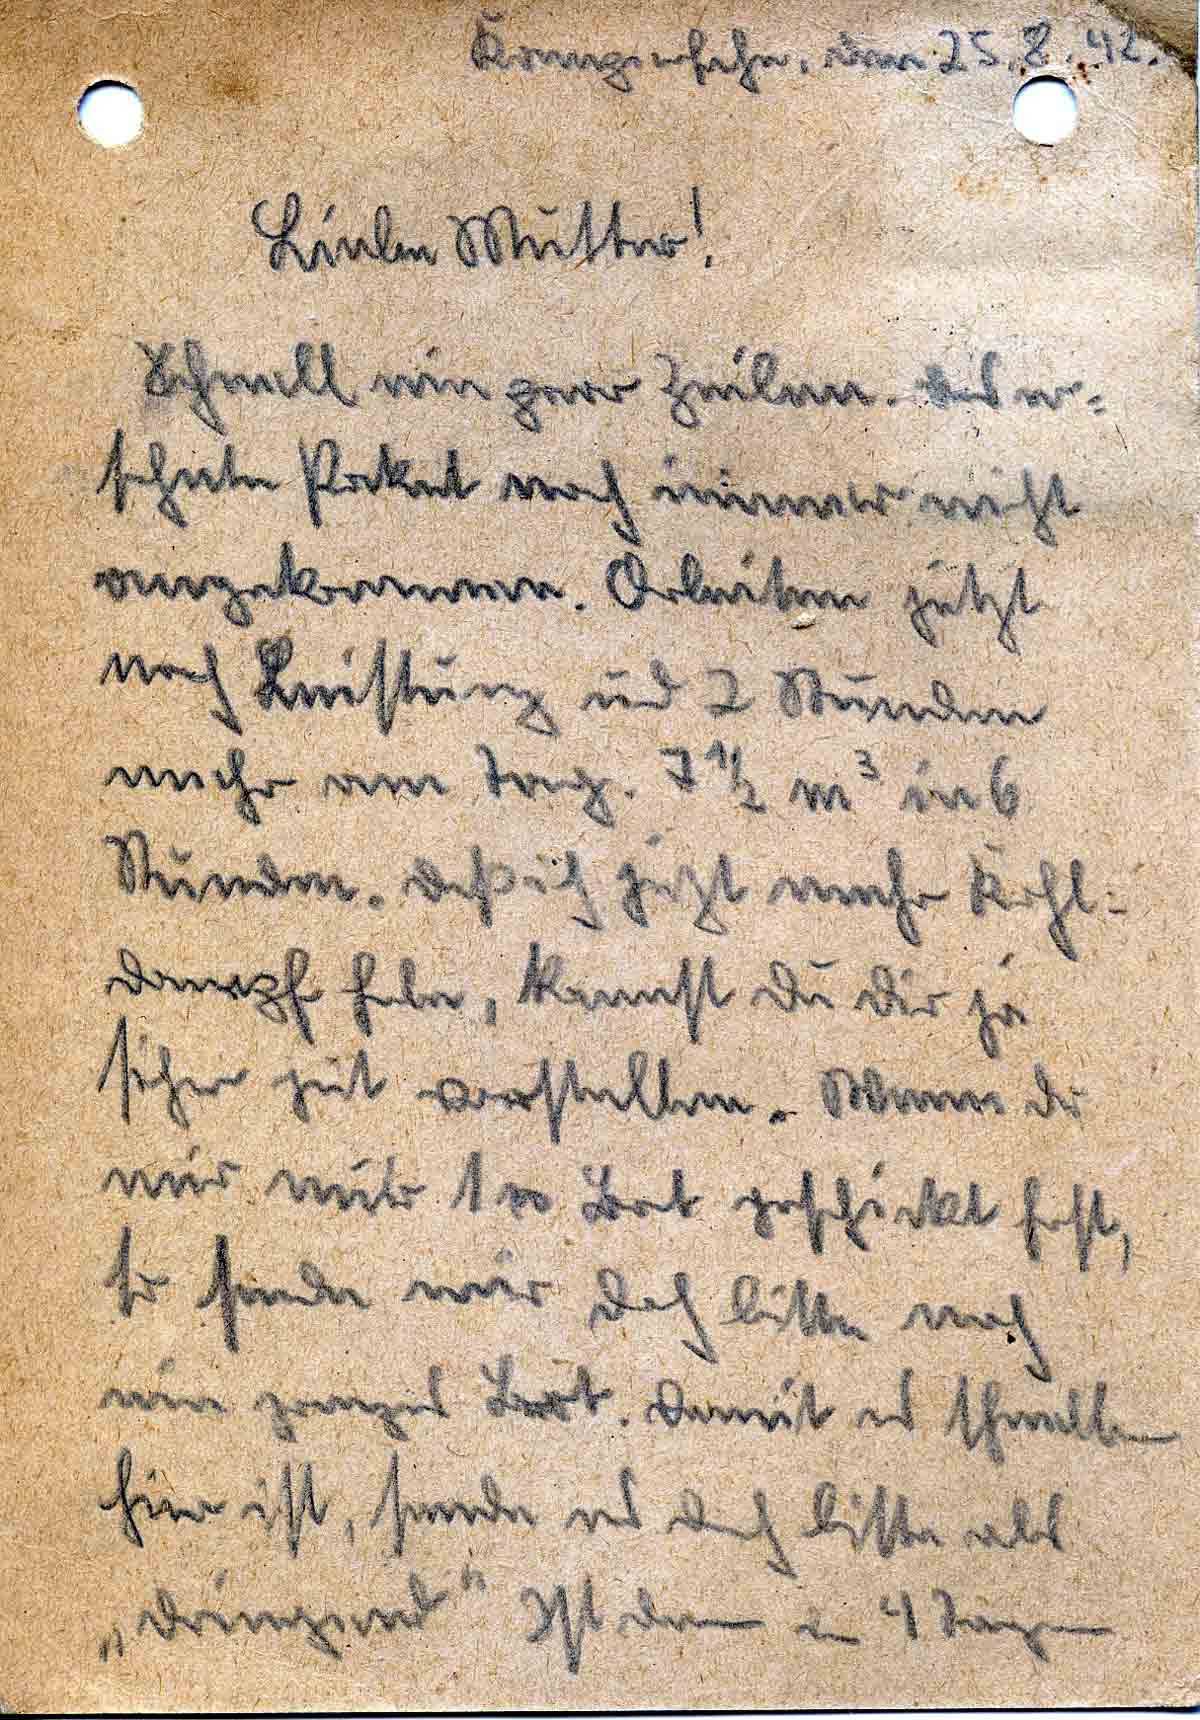 den 25.8.42.
Liebe Mutter!
Schnell ein paar Zeilen. Das er-
sehnte Paket noch immer nicht
angekommen. Arbeiten jetzt
nach Leistung und 2 Stunden
mehr am Tag. 7 1/2 m³ in 6
Stunden. Daß ich jetzt mehr Kohl-
dampf habe, kannst du dir ja
sicher gut vorstellen. Wenn du
mir nur 1 Brot geschickt hast,
so sende mir doch bitte noch
ein ganzes Brot. Damit es schnell
hier ist, sende es doch bitte als
„dringend" Ist dann in 4 Tagen